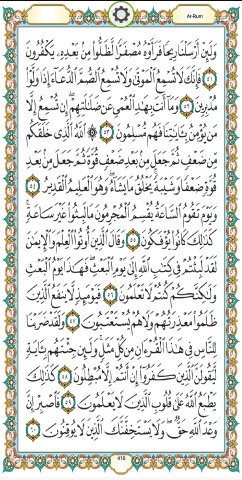 Ar-Rum
وَلَئِنْ أَرْسَلْنَا رِيحًا فَرَأَوْهُ مُصْفَرًّا لَّظَلُّوا۟ مِنۢ بَعْدِهِۦ يَكْفُرُونَ
٥١ فَإِنَّكَ لَا تُسْمِعُ ٱلْمَوْتَىٰ وَلَا تُسْمِعُ ٱلصُّمَّ ٱلدُّعَآءَ إِذَا وَلَّوْا۟
مُدْبِرِينَ ٥٢ وَمَآ أَنتَ بِهَٰدِ ٱلْعُمْىِ عَن ضَلَٰلَتِهِمْ ۖ إِن تُسْمِعُ إِلَّا
مَن يُؤْمِنُ بِـَٔايَٰتِنَا فَهُم مُّسْلِمُونَ ٥٣ ۞ ٱللَّهُ ٱلَّذِى خَلَقَكُم
مِّن ضَعْفٍ ثُمَّ جَعَلَ مِنۢ بَعْدِ ضَعْفٍ قُوَّةً ثُمَّ جَعَلَ مِنۢ بَعْدِ
قُوَّةٍ ضَعْفًا وَشَيْبَةً ۚ يَخْلُقُ مَا يَشَآءُ ۖ وَهُوَ ٱلْعَلِيمُ ٱلْقَدِيرُ ٥٤
وَيَوْمَ تَقُومُ ٱلسَّاعَةُ يُقْسِمُ ٱلْمُجْرِمُونَ مَا لَبِثُوا۟ غَيْرَ سَاعَةٍ ۚ
كَذَٰلِكَ كَانُوا۟ يُؤْفَكُونَ ٥٥ وَقَالَ ٱلَّذِينَ أُوتُوا۟ ٱلْعِلْمَ وَٱلْإِيمَٰنَ
لَقَدْ لَبِثْتُمْ فِى كِتَٰبِ ٱللَّهِ إِلَىٰ يَوْمِ ٱلْبَعْثِ ۖ فَهَٰذَا يَوْمُ ٱلْبَعْثِ
وَلَٰكِنَّكُمْ كُنتُمْ لَا تَعْلَمُونَ ٥٦ فَيَوْمَئِذٍ لَّا يَنفَعُ ٱلَّذِينَ
ظَلَمُوا۟ مَعْذِرَتُهُمْ وَلَا هُمْ يُسْتَعْتَبُونَ ٥٧ وَلَقَدْ ضَرَبْنَا
لِلنَّاسِ فِى هَٰذَا ٱلْقُرْءَانِ مِن كُلِّ مَثَلٍ ۚ وَلَئِن جِئْتَهُم بِـَٔايَةٍ
لَّيَقُولَنَّ ٱلَّذِينَ كَفَرُوٓا۟ إِنْ أَنتُمْ إِلَّا مُبْطِلُونَ ٥٨ كَذَٰلِكَ
يَطْبَعُ ٱللَّهُ عَلَىٰ قُلُوبِ ٱلَّذِينَ لَا يَعْلَمُونَ ٥٩ فَٱصْبِرْ إِنَّ
وَعْدَ ٱللَّهِ حَقٌّ ۖ وَلَا يَسْتَخِفَّنَّكَ ٱلَّذِينَ لَا يُوقِنُونَ ٦٠
410